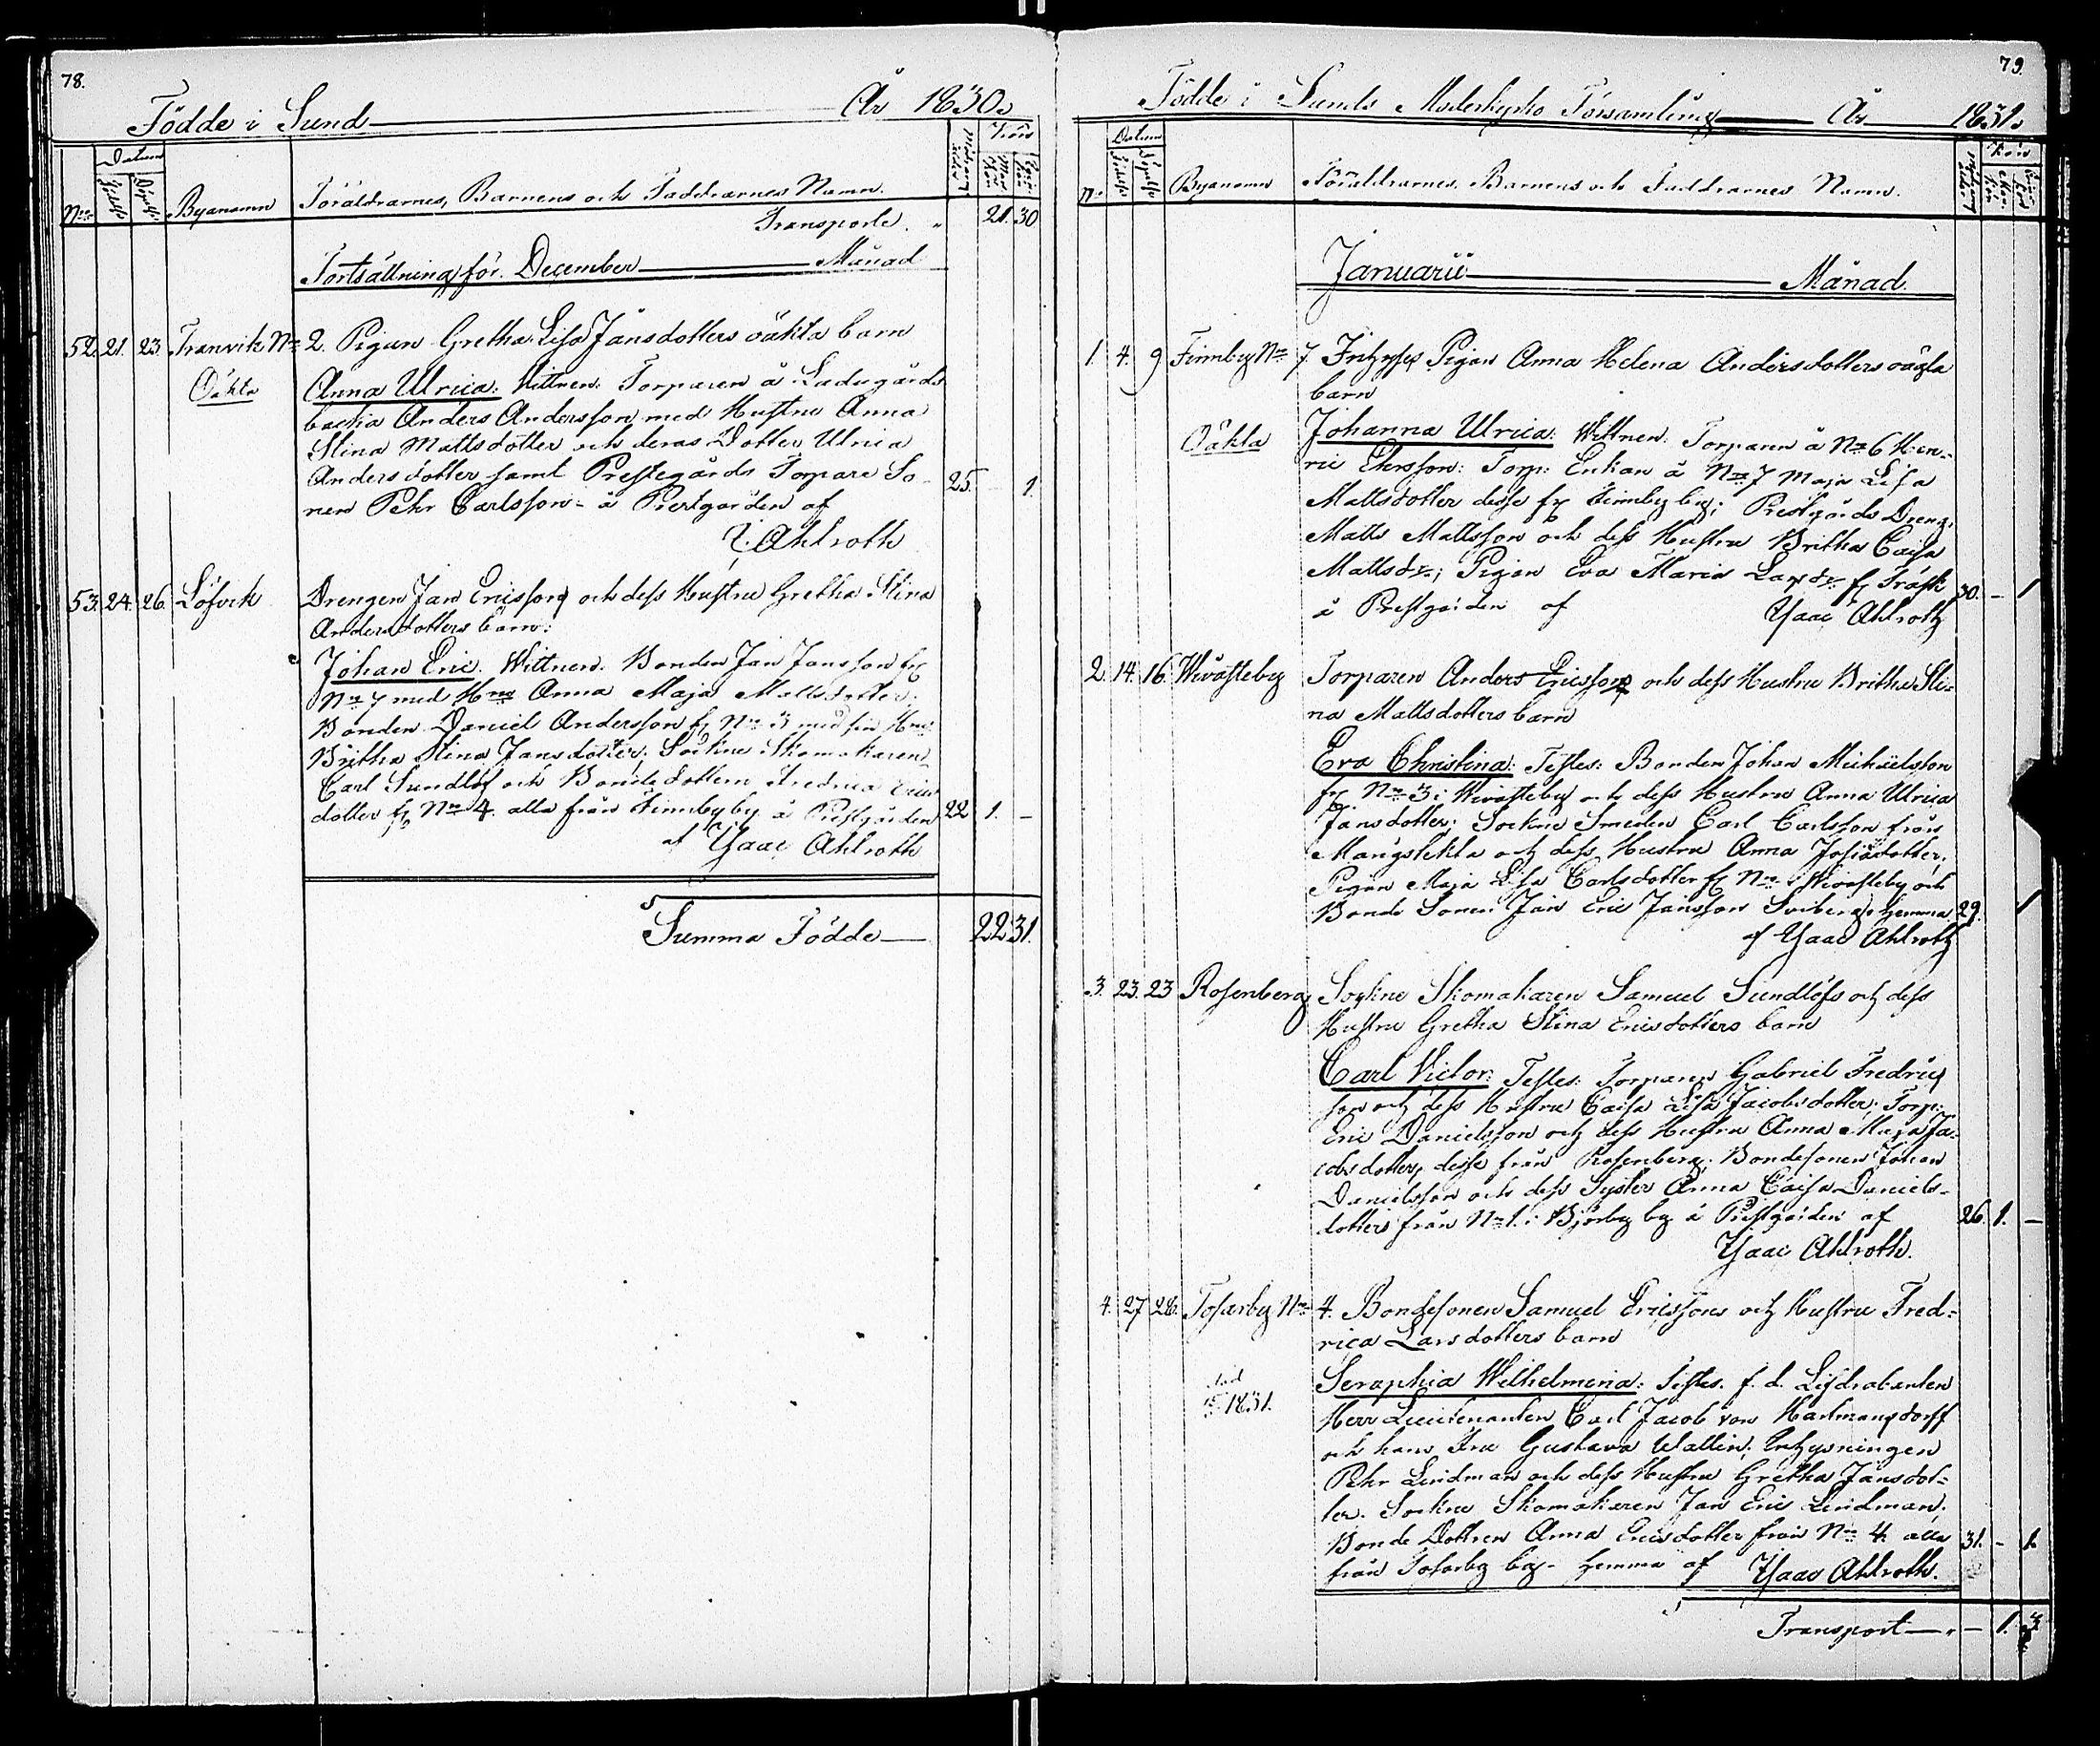 78.
Födde i Sund År 1830.
Nr
Datum
Födelse
Döpelse
Byanamn
Föräldrarnes, Barnens och Faddrarnes Namn.
Kön
Transporte. " 21. 30
Fortsättning för December Månad
52. 21. 23. Tranvik No 2. Pigan Gretha Lisa Jansdotters oäkta barn
Oäkta Anna Ulrica: Wittnen: Torparen å Ladugårds
backa Anders Andersson med Hustru Anna
Stina Mattsdotter och deras Dotter Ulrica
Andersdotter samt Prestegårds Torpare So-
nen Pehr Carlsson - å Prestgården af 25. 1.
Y. Ahlroth
53. 24. 26. Löfvik Drengen Jan Ericssons och dess Hustru Gretha Stina
Andersdotters barn:
Johan Eric. Wittnen. Bonden Jan Jansson fr
No 7 med Hno Anna Maja Mattsdotter.
Bonden Daniel Andersson fr No 3 med sin Hno
Britha Stina Jansdotter; Sockne Skomakaren
Carl Sundlöf och Bondedottern Fredrica Erics
dotter fr No 4. alla från Finnby by å Prestgården 22 1. -
af Ysaac Ahlroth
Summa Födde 22 31.
79.
Födde i Sunds Moderkyrko Församling År 1831.
No
Datum
Byanamn
Föräldrarnes, Barnens och Faddrarnes Namn.
Kön
Januarii Månad.
1. 4. 9 Finnby No 7 Pigan Anna Helena Andersdotters oägta
barn
Oäkta Johanna Ulrica: Wittnen: Torparen å No 6 Hen-
ric Ersson: Torp: Enkan å No 7 Maja Lisa
Mattsdotter desse fr Finnby by; Prestgårds Dreng.
Matts Mattsson och dess Hustru Britha Caisa
Mattsdr; Pigan Eva Maria Larsdr fr Träsk 30. - 1
å Prestgården af Ysaac Ahlroth
2. 14. 16. Wivasteby Torparen Anders Ericssons och dess Hustru Britha Sti-
na Mattsdotters barn
Eva Christina: Testes: Bonden Johan Michielsson
fr No 3 i Wivasteby och dess Hustru Anna Ulrica
Jansdotter; Sockne Smeden Carl Carlsson från
Mångstekta och dess Hustru Anna Josiädotter;
Pigan Maja Lisa Carlsdotter fr No 1 Wivasteby och
Bonde Sonen Jan Eric Jansson Sviberg. hemma 29. 1
af Ysaac Ahlroth
3. 23. 23 Rosenberg Sockne Skomakaren Samuel Sundlöfs och dess
Hustru Gretha Stina Ericsdotters barn
Carl Victor: Testes: Torparen Gabriel Fredrics
son och dess Hustru Caisa Lisa Jacobsdotter; Torp:
Eric Danielsson och dess Hustru Anna Maja Ja-
cobsdotter, desse från Rosenberg; Bondesonen Johan
Danielsson och dess Syster Anna Caisa Daniels-
dotter från No 1. i Björby by å Prestgården af 26. 1. -
Ysaac Ahlroth.
4. 27 28. Tosarby No 4. Bondesonen Samuel Ericssons och Hustru Fred-
rica Larsdotters barn
död 1831. Seraphia Wilhelmina: Testes. f. d. Lifdrabanten
Herr Lieutenanten Carl Jacob von Hartmansdorff
och hans Fru Gustava Wallin; Inhysningen
Pehr Lindman och dess Hustru Gretha Jansdot-
ter. Sockne Skomakaren Jan Eric Lindman.
Bonde Dottren Anna Ericsdotter från No 4. alla 31. - 1.
från Tosarby by - hemma af Ysaac Ahlroth.
Transport - 1. 3.